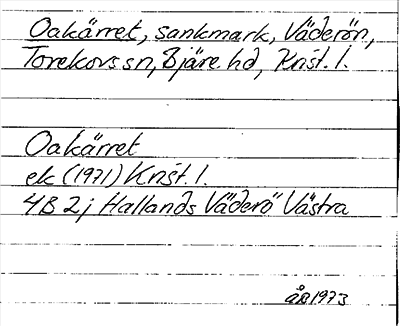 Oakärret, sankmark, Väderön,
Torekovs sn, Bjäre hd, Krist. l.
Oakärret
ek (1971) Krist. l.
4B 2j Hallands Väderö Västra
ÅB 1973